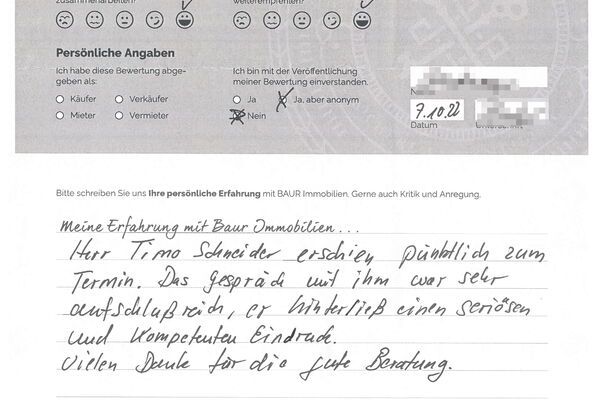 zusammenarbeiten? weiterempfehlen?
Persönliche Angaben
Ich habe diese Bewertung abge-
geben als:
Käufer Verkäufer
Mieter Vermieter
Ich bin mit der Veröffentlichung
meiner Bewertung einverstanden.
Ja Ja, aber anonym
Nein
7.10.22
Datum
Bitte schreiben Sie uns Ihre persönliche Erfahrung mit BAUR Immobilien. Gerne auch Kritik und Anregung.
Meine Erfahrung mit Baur Immobilien...
Herr Timo Schneider erschien pünktlich zum
Termin. Das Gespräch mit ihm war sehr
aufschlußreich, er hinterließ einen seriösen
und kompetenten Eindruck.
Vielen Dank für die gute Beratung.